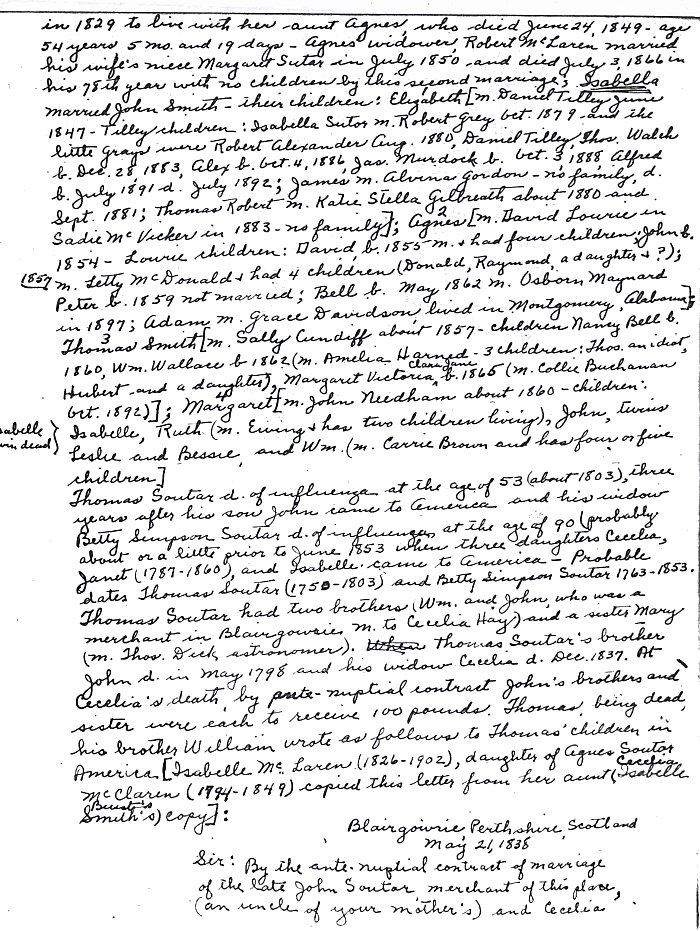 in 1829 to live with her aunt Agnes, who died June 24, 1849 - age
54 years 5 mo. and 19 days - Agnes' widower, Robert McLaren married
his wife's niece Margaret Sutar in July 1850 and died July 3, 1866 in
his 78th year with no children by this second marriage; Isabella
married John Smith - their children: Elizabeth [m. Daniel Tilley June
1847 - Tilley children: Isabella Sutor m. Robert Grey Oct. 1879 and the
little Grays were Robert Alexander Aug. 1880, Daniel Tilley, Thos. Walch
b. Dec. 28, 1883, Alex b. Oct. 4, 1886, Jas. Murdock b. Oct. 3 1888, Alfred
b. July 1891 d. July 1892; James m. Alvina Gordon - no family, d.
Sept. 1881; Thomas Robert m. Katie Stella Gilbreath about 1880 and
Sadie McVicker in 1883 - no family]; Agnes 2 [m. David Lourie in
1854 - Lourie children: David, b. 1855 m. & had four children; John b.
1857 m. Letty McDonald & had 4 children (Donald, Raymond, a daughter & ?);
Peter b. 1859 not married; Bell b. May 1862 m. Osborn Maynard
in 1897; Adam m. Grace Davidson lived in Montgomery, Alabama];
Thomas 3 Smith [m. Sally Cundiff about 1857 - children Nancy Bell b.
1860, Wm. Wallace b 1862 (m. Amelia Harned - 3 children: Thos. an idiot,
Hubert and a daughter), Margaret Victoria, Clara Jane b. 1865 (m. Collie Buchanan
Oct. 1892)]; Margaret 4 [m. John Needham about 1860 - children:
Isabelle, Ruth (m. Ewing & has two children living), John, twins
Leslie and Bessie, and Wm. (m. Carrie Brown and has four or five
children]
Thomas Soutar d. of influenza at the age of 53 (about 1803), three
years after his son John came to America and his widow
Betty Simpson Soutar d. of influenza at the age of 90 (probably
about or a little prior to June 1853 when three daughters Cecelia,
Janet (1787-1860), and Isabelle came to America - Probable
dates Thomas Soutar (1750-1803) and Betty Simpson Soutar 1763-1853.
Thomas Soutar had two brothers (Wm. and John, who was a
merchant in Blairgowrie, m. to Cecelia Hay) and a sister Mary
(m. Thos. Dick, astronomer). When Thomas Soutar's brother
John d. in May 1798 and his widow Cecelia d. Dec. 1837. At
Cecelia's death, by ante-nuptial contract John's brothers and
sister were each to receive 100 pounds. Thomas, being dead,
his brother William wrote as follows to Thomas' children in
America. [Isabelle McLaren (1826-1902), daughter of Agnes Soutar
McClaren (1794-1849) copied this letter from her aunt (Isabelle Cecelia
Smith's) copy]:
Blairgowrie, Perthshire, Scotland
May 21, 1838
Sir: By the ante-nuptial contract of marriage
of the late John Soutar merchant of this place,
(an uncle of your mother's) and Cecelia